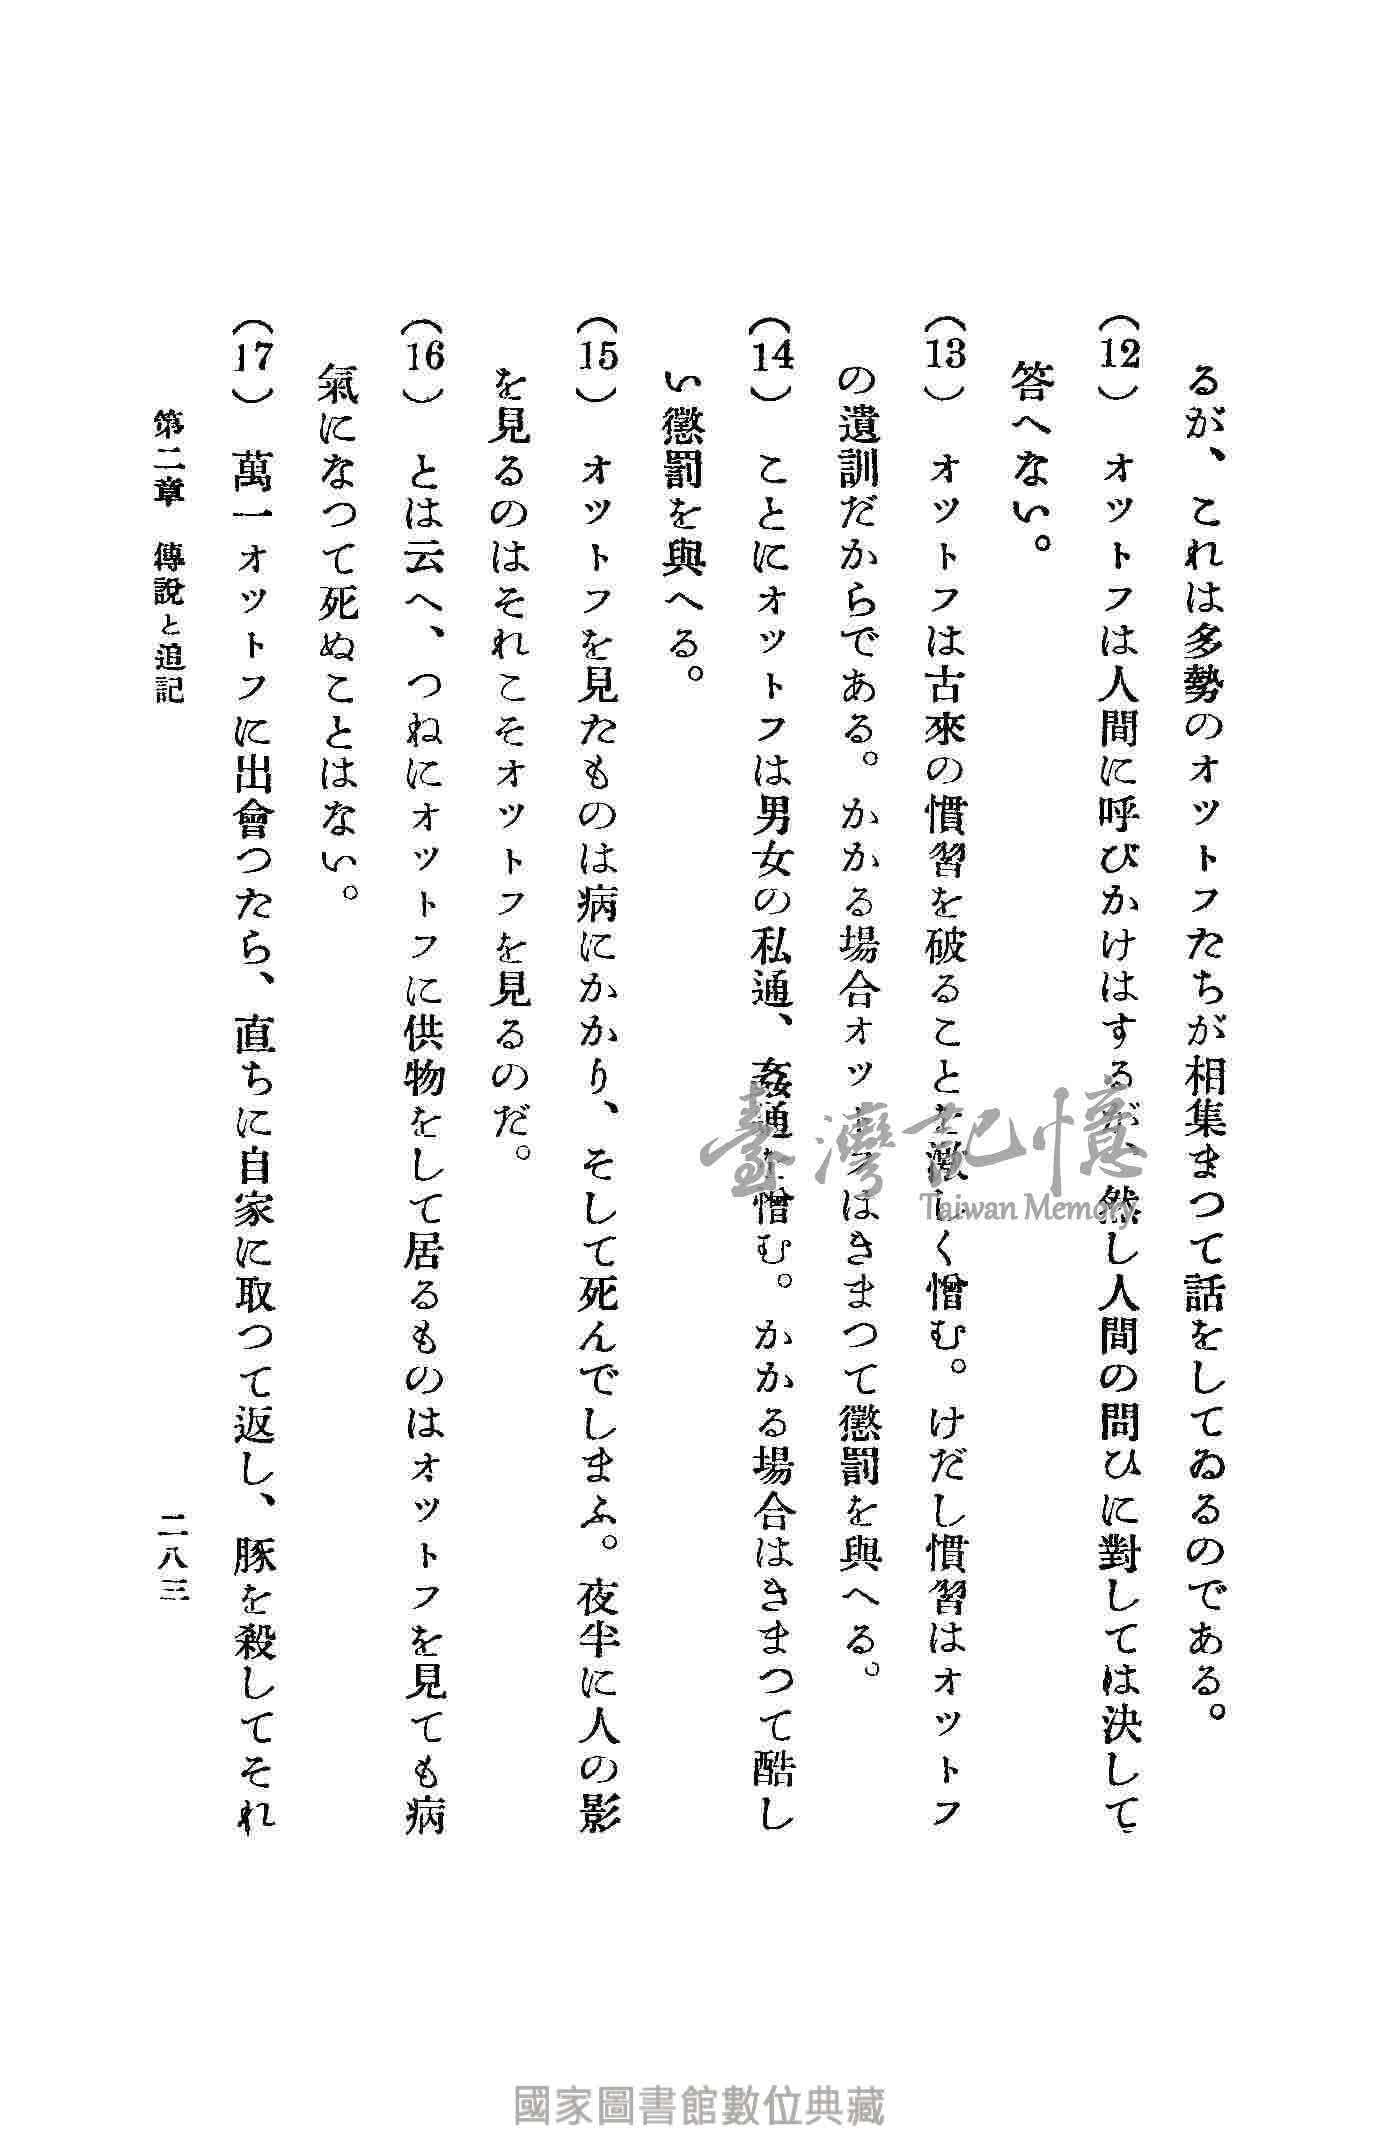 るが、これは多勢のオットフたちが相集まつて話をしてゐるのである。
（12）　オットフは人間に呼びかけはするが、然し人間の問ひに對しては決して
答へない。
（13）　オットフは古來の慣習を破ることを激しく憎む。けだし慣習はオットフ
の遺訓だからである。かかる場合オットフはきまつて懲罰を與へる。
（14）　ことにオットフは男女の私通、姦通を憎む。かかる場合はきまつて酷し
い懲罰を與へる。
（15）　オットフを見たものは病にかかり、そして死んでしまふ。夜半に人の影
を見るのはそれこそオットフを見るのだ。
（16）　とは云へ、つねにオットフに供物をして居るものはオットフを見ても病
氣になつて死ぬことはない。
（17）　萬一オットフに出會つたら、直ちに自家に取つて返し、豚を殺してそれ
第二章　傳說と追記
二八三
臺灣記憶
Taiwan Memory
國家圖書館數位典藏